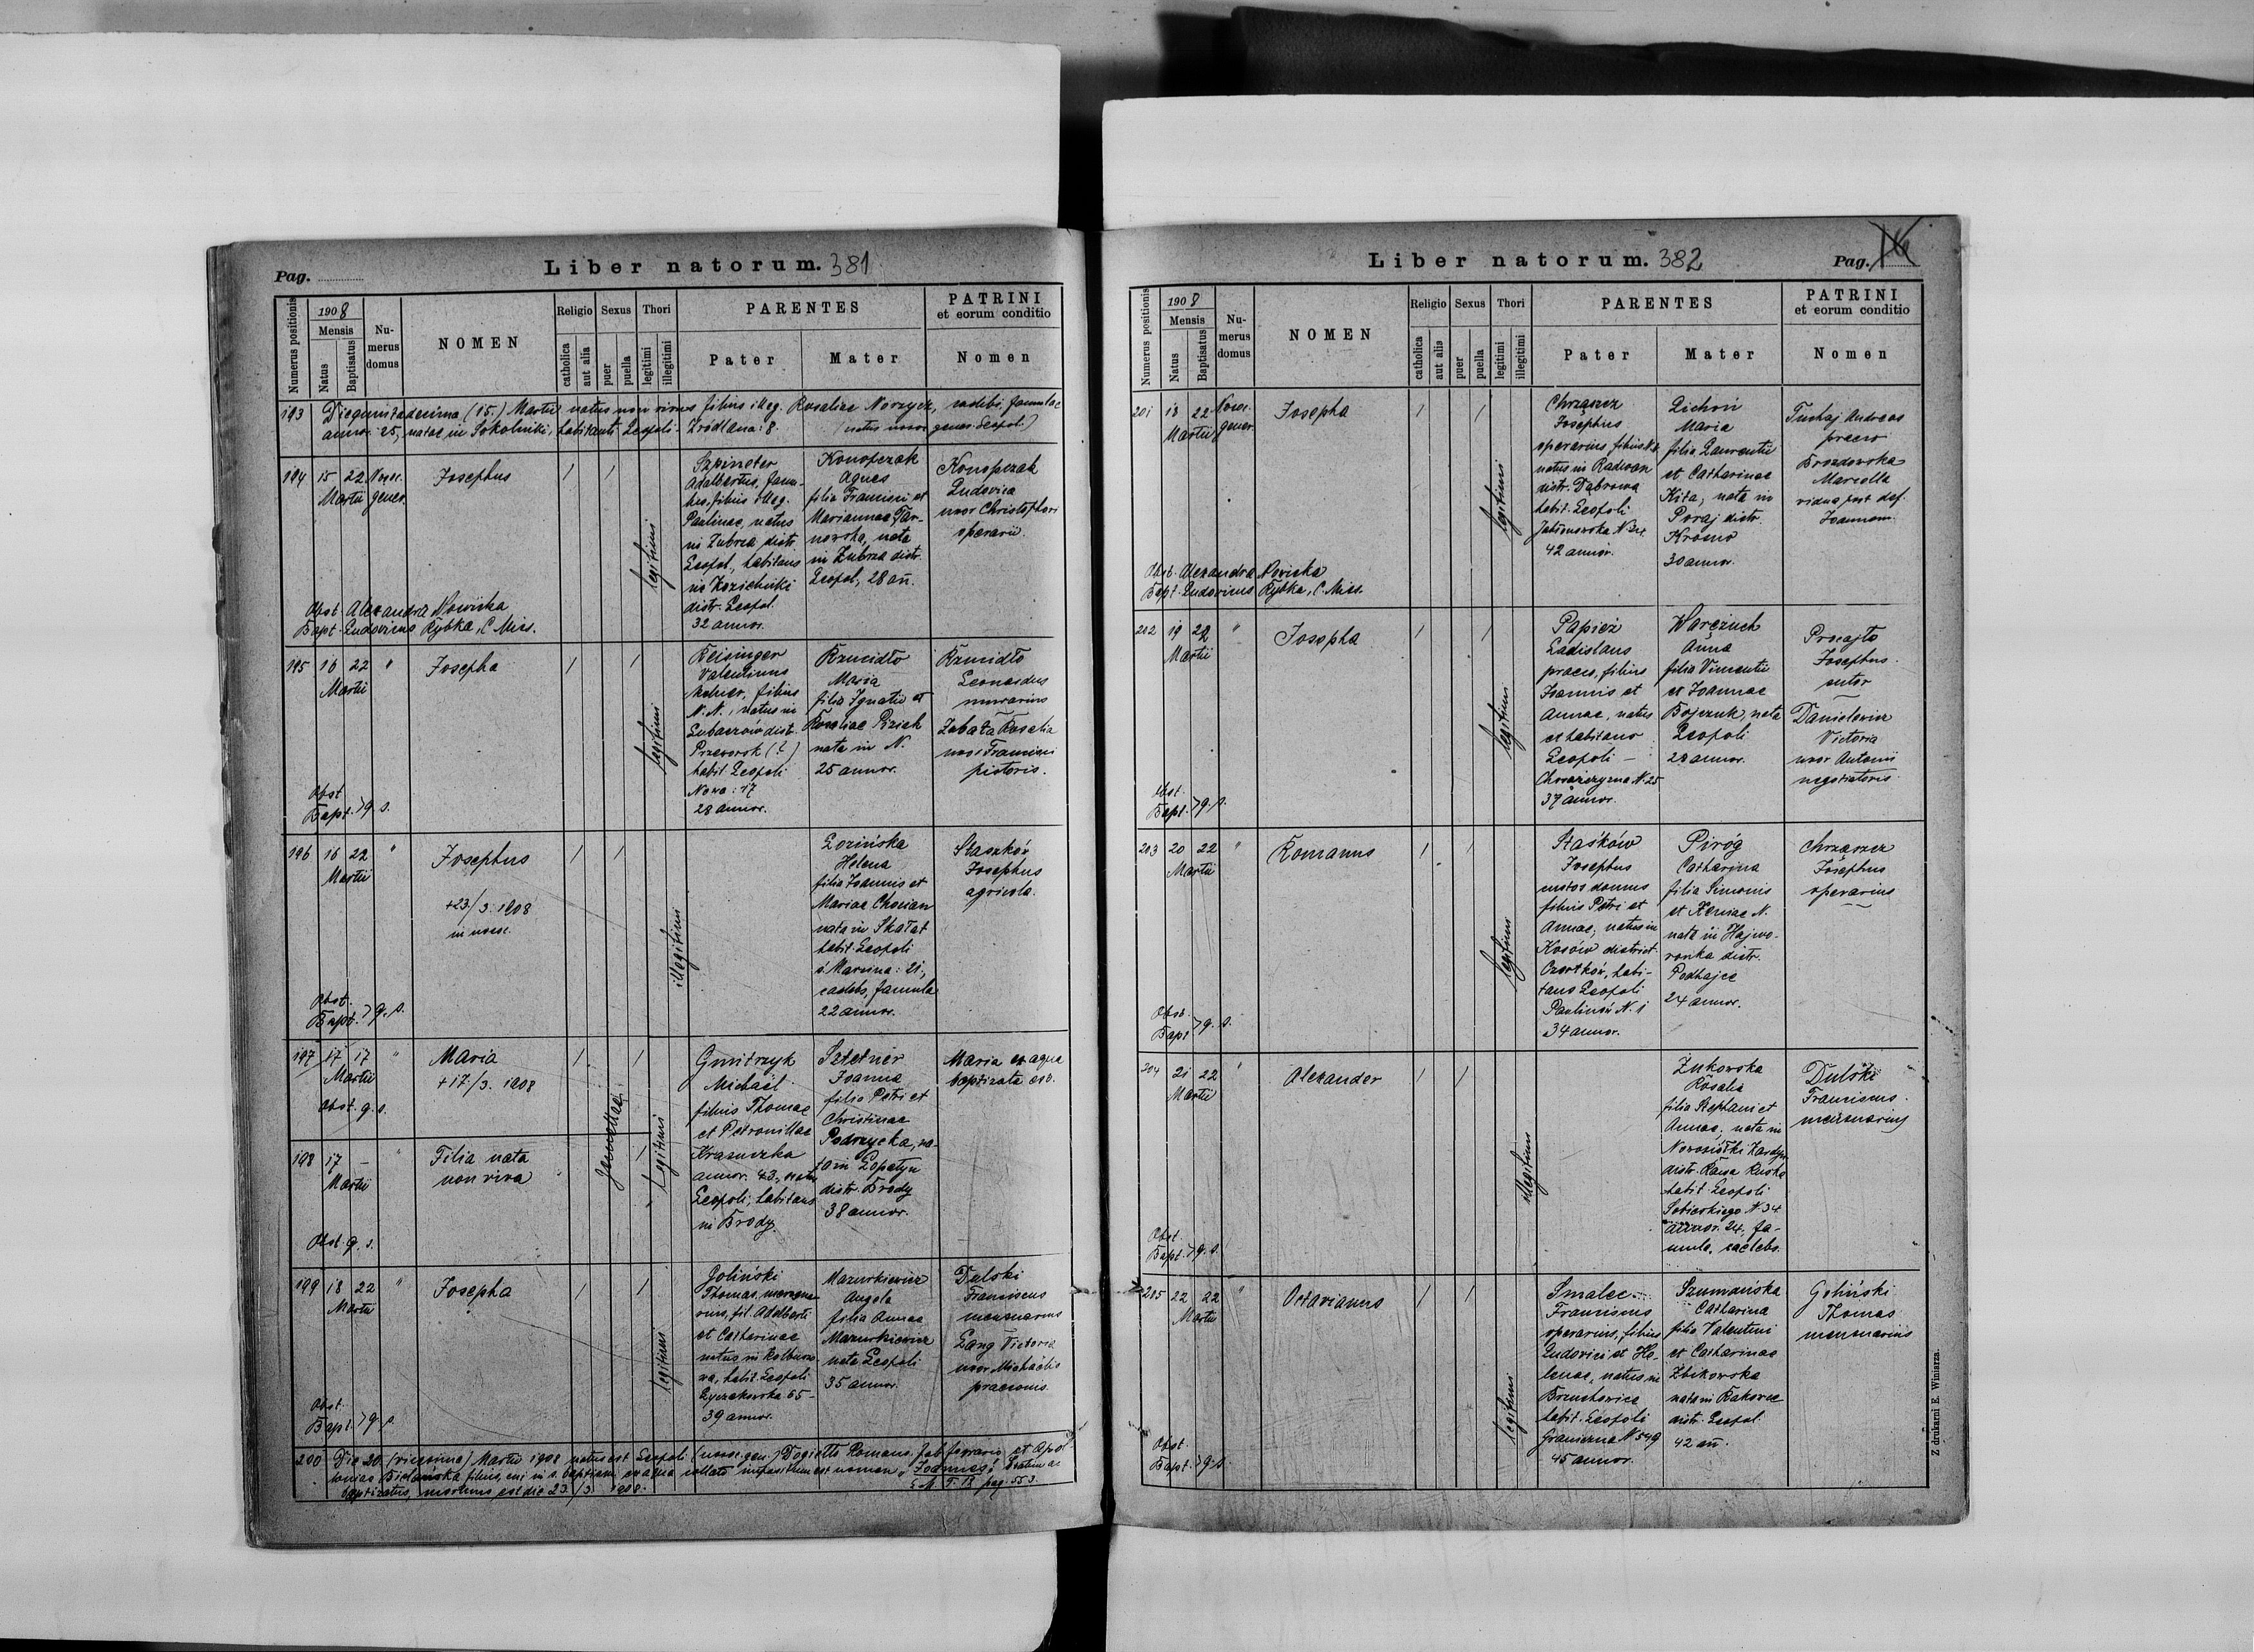 Pag.
Liber natorum. 381
Numerus positionis
1908
Mensis
Natus
Baptisatus
Nu-
merus
domus
NOMEN
Religio
catholica
aut alia
Sexus
puer
puella
Thori
legitimi
illegitimi
PARENTES
Pater
Mater
PATRINI
et eorum conditio
Nomen
193 Die quintadecima (15.) Martii natus non vivus filius illeg. Rosaliae caelebs, famulae
annor. 25, natae in Sokolniki, habitantis Leopoli Zrodlana: 8. (natus nosoc. gener. Leopol.)
194 15 22 Nosoc.
Martii gener.
Josephus
legitimi
Szpineter
Adalbertus, famu-
lus, filius illeg.
Paulinae, natus
in Zubrza distr.
Leopol., habitans
in
distr. Leopol.
32 annor.
Konopczak
Agnes
filia Francisci et
Mariannae Tar-
nowska, nata
in Zubrza distr.
Leopol, 28 an.
Konopczak
Ludovica
uxor Christophori
operarii.
Obst. Alexandra Nowicka
Bapt. Ludovicus Rybka, C. Miss.
195 16 22 "
Martii
Josepha
legitimi
Reisinger
Valentinus
filius
N. N., natus in
Lubaczów distr.
Przeworsk (?)
habit. Leopoli
Nowa: 17
28 annor.
Rzucidło
Maria
filia Ignatii et
Rosaliae
nata in N.
25 annor.
Rzucidło
Leonardus
murarius
Rosalia
uxor Francisci
pistoris.
Obst.
Bapt. > q. s.
196 16 22 "
Martii
Josephus
+23/3. 1908
in nosoc.
illegitimi
Łozińska
Helena
filia Joannis et
Mariae
nata in Skałat
habit. Leopoli
ś. Marcina: 21,
caelebs, famula
22 annor.
Staszków
Josephus
agricola.
Obst.
Bapt. > q. s.
197 17 17 "
Martii
Maria
+17/3. 1908
Obst. q. s.
Gemellae
legitimi
Gmitrzyk
Michaël
filius Thomae
et Petronillae
Krasuczka
annor. 43, natus
Leopoli, habitans
in Brody.
Sztetner
Joanna
filia Petri et
Christinae
Podrzycka, na-
ta in Łopatyn
distr. Brody
38 annor.
Maria ex aqua
baptizata est.
198 17 — "
Martii
Filia nata
non viva
Obst. q. s.
199 18 22 "
Martii
Josepha
legitimi
Goliński
Thomas,
fil. Adalberti
et Catharinae
natus in Kolbuszo-
wa, habit. Leopoli
Łyczakowska 65 –
39 annor.
Mazurkiewicz
Angela
filia Annae
Mazurkiewicz
nata Leopoli
35 annor.
Dulski
Franciscus
mensuarius
Lang Victoria
uxor Michaëlis
praeconis.
Obst.
Bapt. > q. s.
200 Die 20. (vicesima) Martii 1908 natus est Leopoli (nosoc. gen.) Romano, et Apol-
loniae filius, cui in s. baptismo ex aqua collato impositum est nomen "Joannes".
baptizatus, mortuus est die 23./3. 1908. L. M. T. 13 pag. 553.
Liber natorum. 382
Pag. 16
Numerus positionis
1908
Mensis
Natus
Baptisatus
Nu-
merus
domus
NOMEN
Religio
catholica
aut alia
Sexus
puer
puella
Thori
legitimi
illegitimi
PARENTES
Pater
Mater
PATRINI
et eorum conditio
Nomen
201 18 22 Nosoc.
Martii gener.
Josepha
legitimi
Chrząszcz
Josephus
operarius filius
natus in Radwan
distr. Dąbrowa
habit. Leopoli
Jabłonowska
42 annor.
Pichoń
Maria
filia Laurentii
et Catharinae
Kita, nata in
Poraj distr.
Krosno
30 annor.
Tustaj Andreas
praeco
Brozdowska
Marcella
vidua post def.
Joannem.
Obst. Alexandra Nowicka
Bapt. Ludovicus Rybka, C. Miss.
202 19 22 "
Martii
Josepha
legitimi
Papież
Ladislaus
praeco, filius
Joannis et
Annae, natus
et habitans
Leopoli –
Chorążczyzna N. 25
37 annor.
Warczuch
Anna
filia Vincentii
et Joannae
Bojczuk, nata
Leopoli
28 annor.
Procajło
Josephus
sutor
Danielewicz
Victoria
uxor Antonii
negotiatoris.
Obst.
Bapt. > q. s.
203 20 22 "
Martii
Romanus
legitimi
Staśków
Josephus
custos domus
filius Petri et
Annae, natus in
Kosów district.
Czortków, habi-
tans Leopoli
Paulinów N. 1
34 annor.
Piróg
Catharina
filia Simonis
et Xeniae N.
nata in Hajwo-
ronka distr.
Podhajce
24 annor.
Chrząszcz
Josephus
operarius
Obst.
Bapt. > q. s.
204 21 22 "
Martii
Alexander
illegitimi
Żukowska
Rosalia
filia Stephani et
Annae, nata in
Nowosiółki Kardyn.
distr. Rawa Ruska
habit. Leopoli
Sobieskiego N. 34
annor. 24, fa-
mula, caelebs.
Dulski
Franciscus
mensuarius
Obst.
Bapt. > q. s.
205 22 22 "
Martii
Octavianus
legitimi
Smalec
Franciscus
operarius, filius
Ludovici et He-
lenae, natus in
Brzuchowice
habit. Leopoli
Graniczna N 549
45 annor.
Szumańska
Catharina
filia Valentini
et Catharinae
Zbikowska
nata in Rakowce
distr. Leopol.
42 an.
Goliński
Thomas
mensuarius
Obst.
Bapt. > q. s.
Z drukarni E. Winiarza.